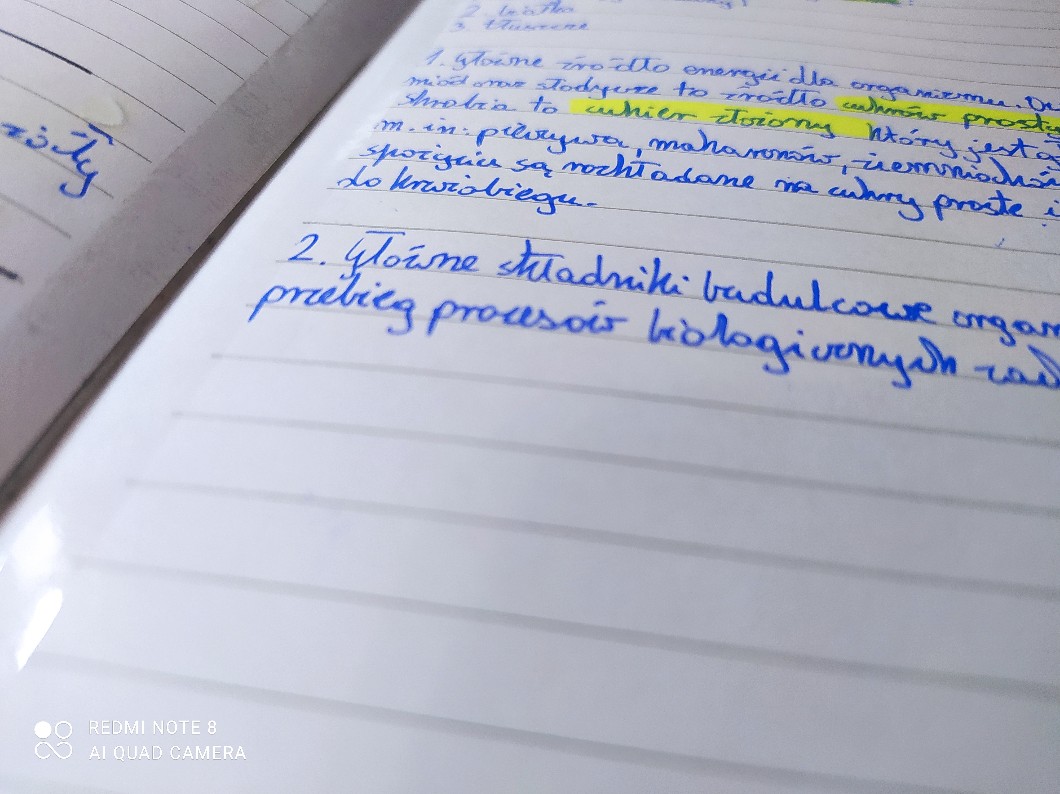 żóły
2. białko
3. tłuszcze
1. Główne źródło energii dla organizmu.
miód oraz słodycze to źródło cukrów
skrobia to cukier złożony który jest
m.in: pieczywa, makaronów, ziemniaków
spożyciu są rozkładane na cukry proste i
do krwiobiegu.
2. Główne składniki budulcowe
przebieg procesów biologicznych
REDMI NOTE 8
AI QUAD CAMERA